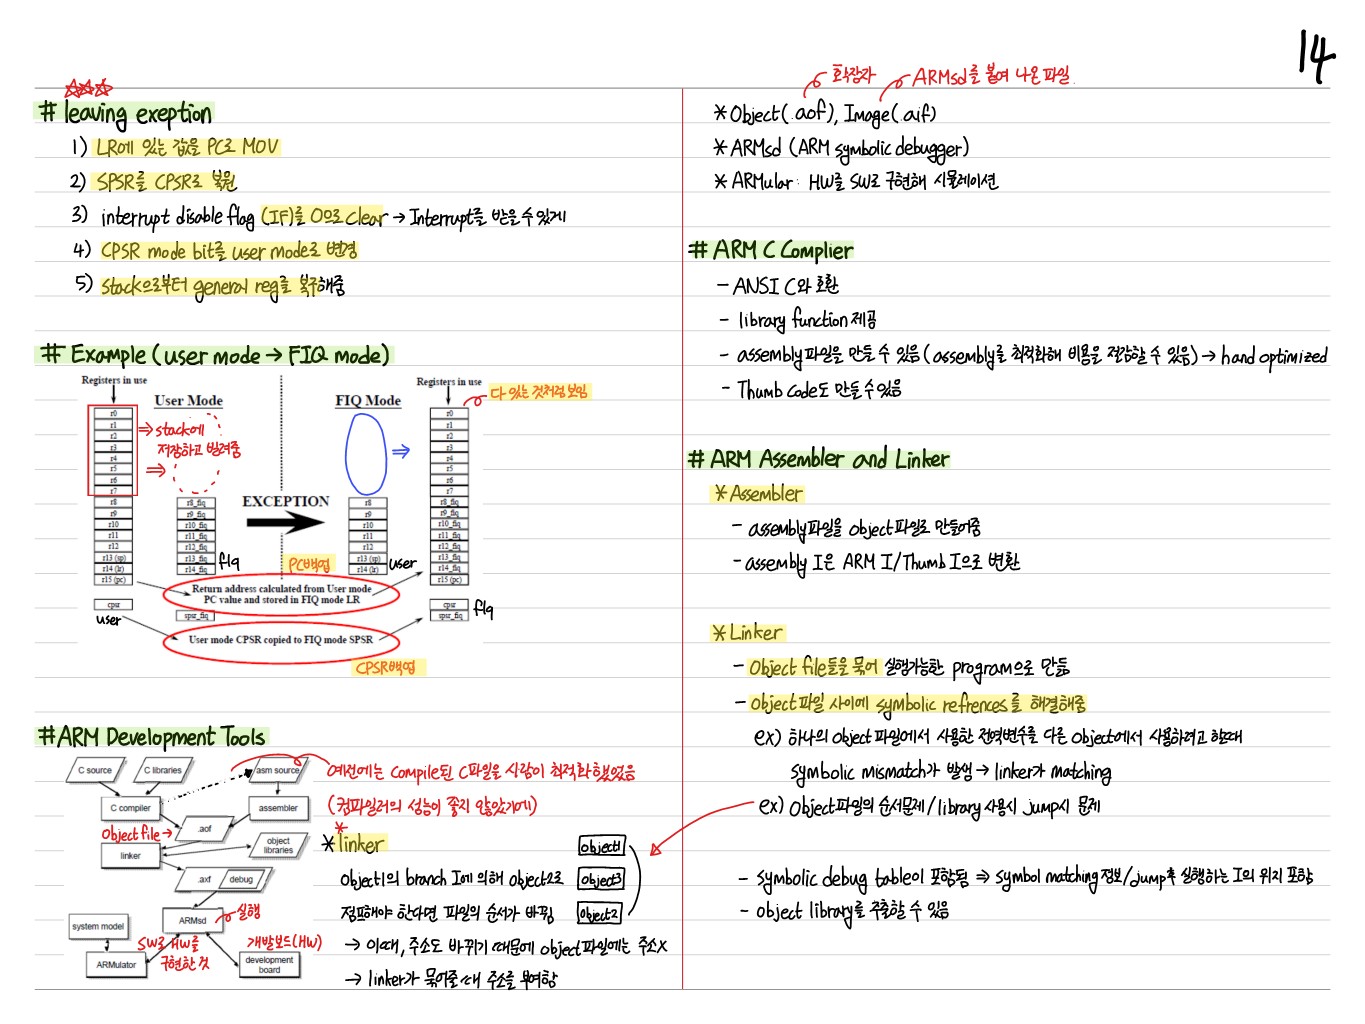 14
# leaving exeption
1) LR에 있는 값을 PC로 MOV
2) SPSR를 CPSR로 복원
3) interrupt disable flag (IF)를 0으로 clear → Interrupt를 받을 수 있게
4) CPSR mode bit를 user mode로 변경
5) stack으로부터 general reg를 복구해줌
# Example (user mode → FIQ mode)
Registers in use
User Mode
FIQ Mode
Registers in use
다 있는 것처럼 보임
r0
r1
r2
r3
r4
r5
r6
r7
r8
r9
r10
r11
r12
r13 (sp)
r14 (lr)
r15 (pc)
cpsr
user
⇒ stack에
저장하고 빌려줌
⇒
r8_fiq
r9_fiq
r10_fiq
r11_fiq
r12_fiq
r13_fiq
r14_fiq
fiq
spsr_fiq
EXCEPTION
PC백업
⇒
r8
r9
r10
r11
r12
r13 (sp)
r14 (lr)
user
r0
r1
r2
r3
r4
r5
r6
r7
r8_fiq
r9_fiq
r10_fiq
r11_fiq
r12_fiq
r13_fiq
r14_fiq
r15 (pc)
cpsr
spsr_fiq
fiq
Return address calculated from User mode
PC value and stored in FIQ mode LR
User mode CPSR copied to FIQ mode SPSR
CPSR백업
#ARM Development Tools
C source
C libraries
asm source
예전에는 Compile된 C파일을 사람이 최적화했었음
C compiler
assembler
(컴파일러의 성능이 좋지 않았기에)
Object file →
.aof
object
libraries
linker
.axf
debug
ARMsd
실행
system model
SW로 HW를
구현한 것
개발보드(HW)
ARMulator
development
board
* linker
Object1의 branch I에 의해 object2로
점프해야 한다면 파일의 순서가 바뀜
→ 이때, 주소도 바뀌기 때문에 object파일에는 주소X
→ linker가 묶어줄 때 주소를 부여함
object1
object3
object2
확장자
ARMsd를 붙여 나온 파일.
* Object(.aof), Image(.aif)
* ARMsd (ARM symbolic debugger)
* ARMular: HW를 SW로 구현해 시뮬레이션
# ARM C Complier
- ANSI C와 호환
- library function 제공
- assembly파일을 만들 수 있음 (assembly를 최적화해 비용을 절감할 수 있음) → hand optimized
- Thumb code도 만들 수 있음
# ARM Assembler and Linker
* Assembler
- assembly파일을 object파일로 만들어줌
- assembly I은 ARM I/Thumb I으로 변환
* Linker
- Object file들을 묶어 실행가능한 program으로 만듦
- object파일 사이에 symbolic refrences를 해결해줌
ex) 하나의 object 파일에서 사용한 전역변수를 다른 object에서 사용하려고 할때
symbolic mismatch가 발생 → linker가 matching
ex) Object파일의 순서문제/library 사용시 jump시 문제
- symbolic debug table이 포함됨 ⇒ symbol matching 정보/jump후 실행하는 I의 위치 포함
- object library를 추출할 수 있음